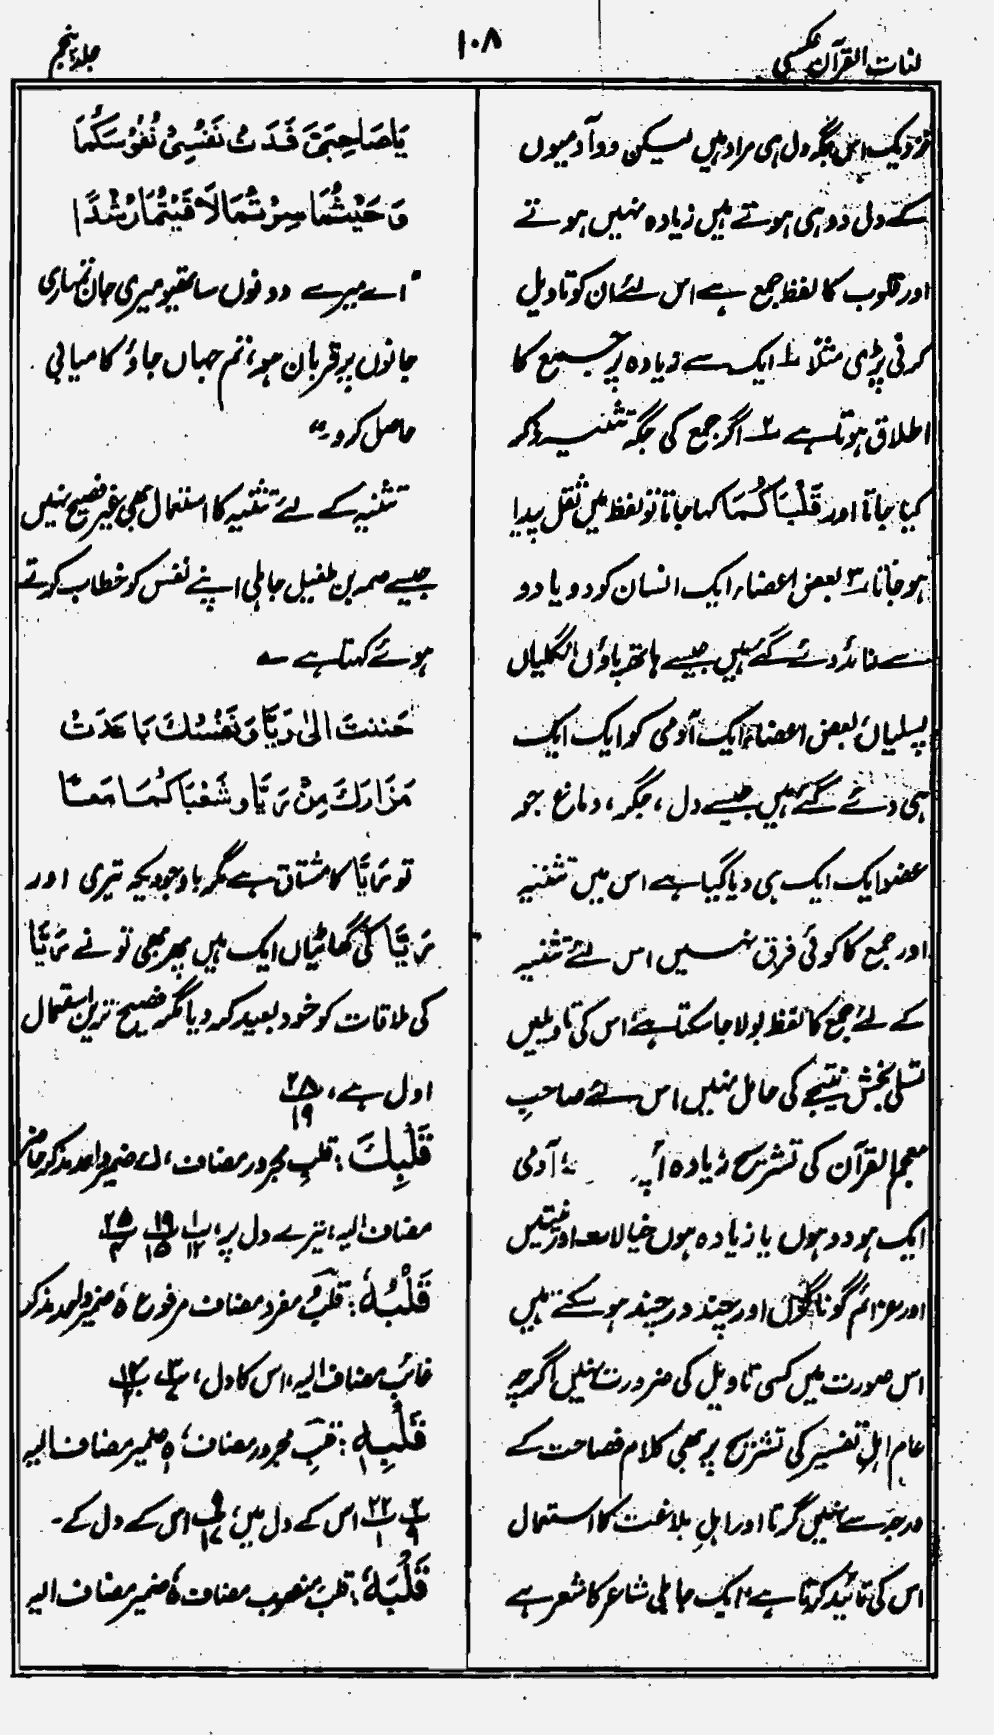 لغات القرآن عکسی
۱۰۸
جلد پنجم
نزدیک اس جگہ دل ہی مراد ہیں لیکن دو آدمیوں
کے دل دو ہی ہوتے ہیں زیادہ نہیں ہوتے
اور قلوب کا لفظ جمع ہے اس لئے ان کو تاویل
کرنی پڑی مثلاً ۱ ایک سے زیادہ پر جمع کا
اطلاق ہوتا ہے ۲ اگر جمع کی جگہ تثنیہ ذکر
کیا جاتا اور قَلْبَاکُمَا کہا جاتا تو لفظ میں ثقل پیدا
ہو جاتا ۳ بعض اعضاء ایک انسان کو دو یا دو
سے زائد دئے گئے ہیں جیسے ہاتھ پاؤں انگلیاں
پسلیاں بعض اعضاء ایک آدمی کو ایک ایک
ہی دئے گئے ہیں جیسے دل، جگر، دماغ جو
عضو ایک ایک ہی دیا گیا ہے اس میں تثنیہ
اور جمع کا کوئی فرق نہیں اس لئے تثنیہ
کے لئے جمع کا لفظ بولا جا سکتا ہے اس کی تاویلیں
تسلی بخش نتیجے کی حامل نہیں اس لئے صاحبِ
معجم القرآن کی تشریح زیادہ آدمی
ایک ہو دو ہوں یا زیادہ ہوں خیالات اور نیتیں
اور عزائم گوناگوں اور چند در چند ہو سکتے ہیں
اس صورت میں کسی تاویل کی ضرورت نہیں اگرچہ
عام اہل تفسیر کی تشریح پر بھی کلام فصاحت کے
درجہ سے نہیں گرتا اور اہلِ بلاغت کا استعمال
اس کی تائید کرتا ہے، ایک جاہلی شاعر کا شعر ہے
یَاصَاحِبَیَّ فَدَتْ نَفْسِیْ نُفُوْسَکُمَا
وَحَیْثُمَا سِرْتُمَا لَاقَیْتُمَا رُشْدًا
"اے میرے دونوں ساتھیو میری جان تمہاری
جانوں پر قربان ہو، تم جہاں جاؤ کامیابی
حاصل کرو۔"
تثنیہ کے لئے تثنیہ کا استعمال بھی غیر فصیح نہیں
جیسے صمہ بن طفیل جاہلی اپنے نفس کو خطاب کرتے
ہوئے کہتا ہے ؎
حَنَنْتَ اِلٰی رَیَّا وَنَفْسُكَ بَاعَدَتْ
مَزَارَكَ مِنْ رَیَّا وَشَعْبَاکُمَا مَعًا
تو رَیَّا کا مشتاق ہے مگر باوجودیکہ تیری اور
رَیَّا کی گھاٹیاں ایک ہیں پھر بھی تو نے رَیَّا
کی ملاقات کو خود بعید کر دیا مگر فصیح ترین استعمال
اول ہے، ۲۸/۱۹
قَلْبِكَ: قلبِ مجرور مضاف، كَ ضمیر واحد مذکر حاضر
مضاف الیہ، تیرے دل پر، ۱/۱۲ ۱۹/۱۵ ۲۵/۴
قَلْبُہٗ: قلبُ مفرد مضاف مرفوع ہٗ ضمیر واحد مذکر
غائب مضاف الیہ، اس کا دل،
قَلْبِہٖ: قلبِ مجرور مضاف، ہٖ ضمیر مضاف الیہ
۲/۹ ۲۲/۱ اس کے دل میں، اس کے دل کے۔
قَلْبَہٗ: قلبَ منصوب مضاف ہٗ ضمیر مضاف الیہ